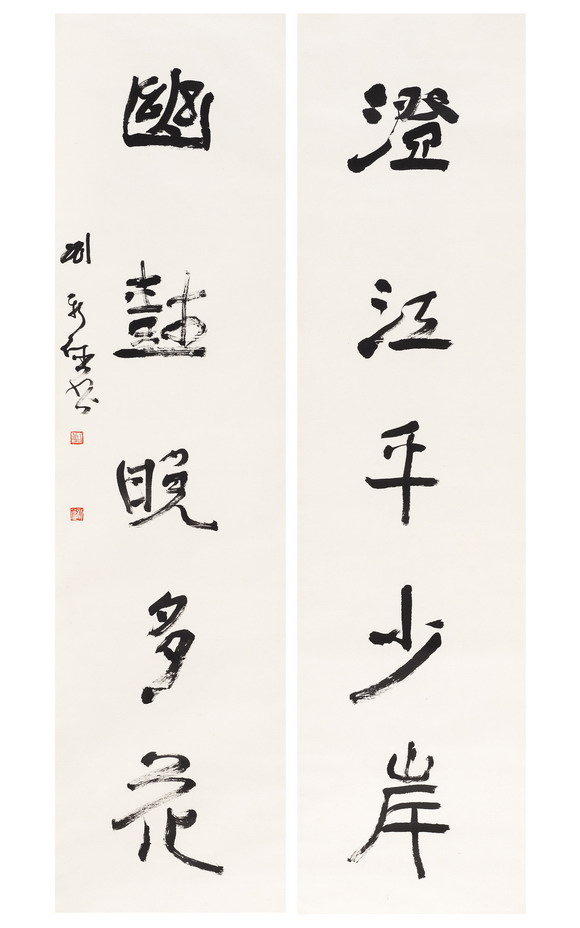 澄江平少岸
幽樹晚多花
刘